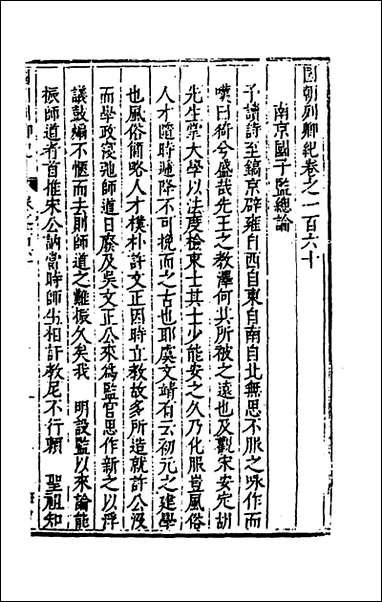 國朝列卿紀卷之一百六十
南京國子監總論
予讀詩至鎬京辟雍自西自東自南自北無思不服之咏作而
嘆曰猗今盛哉先王之教澤何其所被之遠也及觀宋安定胡
先生掌大學以法度檢束士其士少能安之久乃化服豈風俗
人才隨時遞降不可挽而之古也耶虞文靖有云初元之建學
也風俗簡略人才樸朴許文正因時立教故多所造就許公沒
而學政寖弛師道日廢及吳文正公來為監官思作新之以浮
議鼓煽不愜而去則師道之難振久矣我 明設監以來論能
振師道者首推宋公訥當時師生相訐教尼不行賴 聖祖知